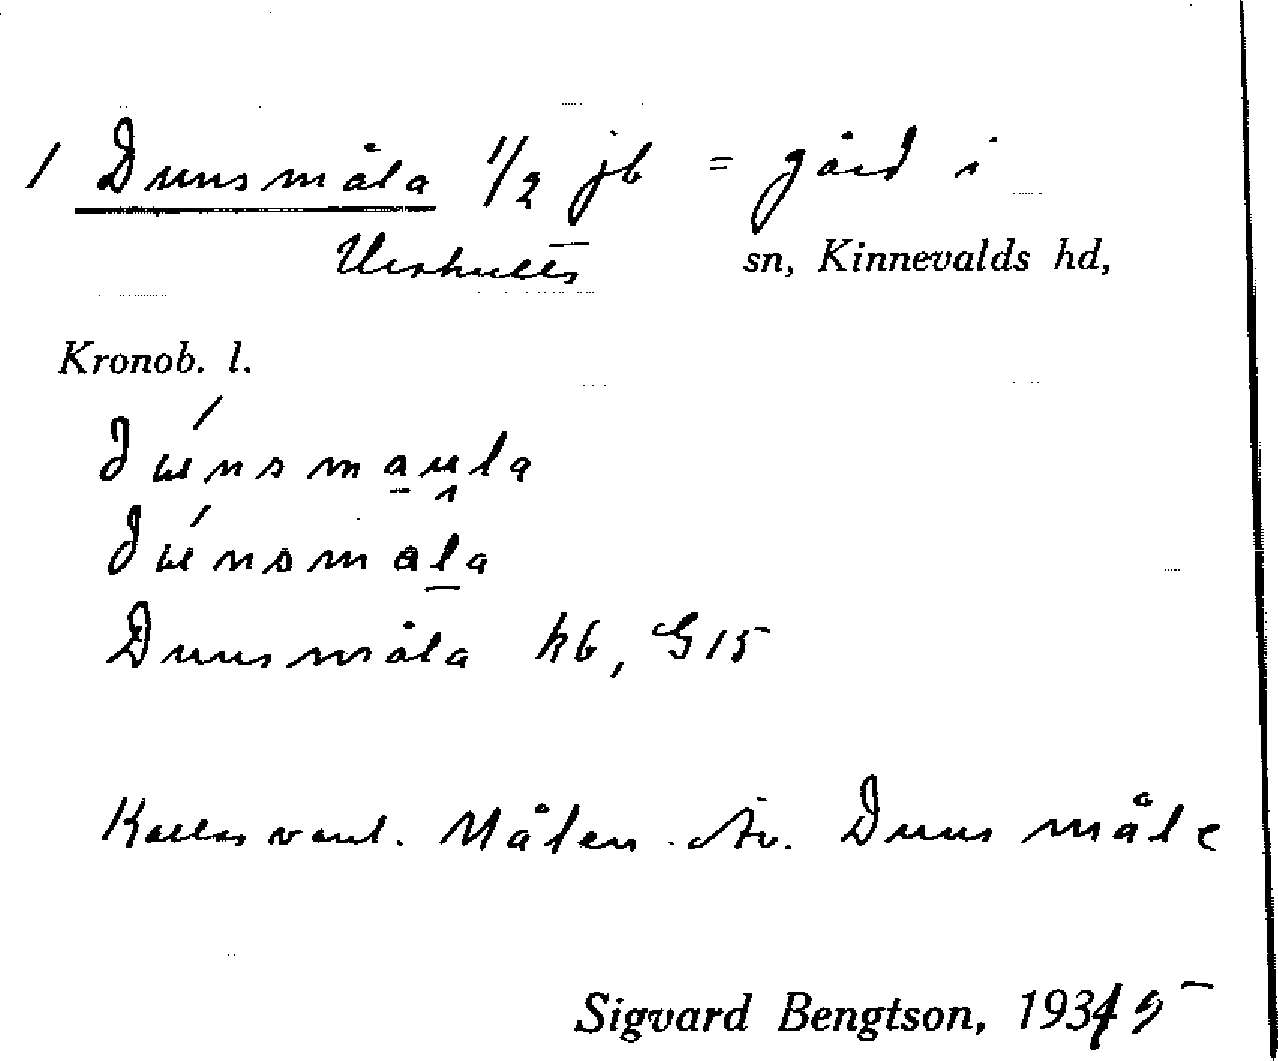 1 Dunsmåla 1/2 jb = gård i
Urshults sn, Kinnevalds hd,
Kronob. l.
Dunsmåla hb, G15
Kallas vanl. Målen. Av. Duns måle
Sigvard Bengtson, 1935